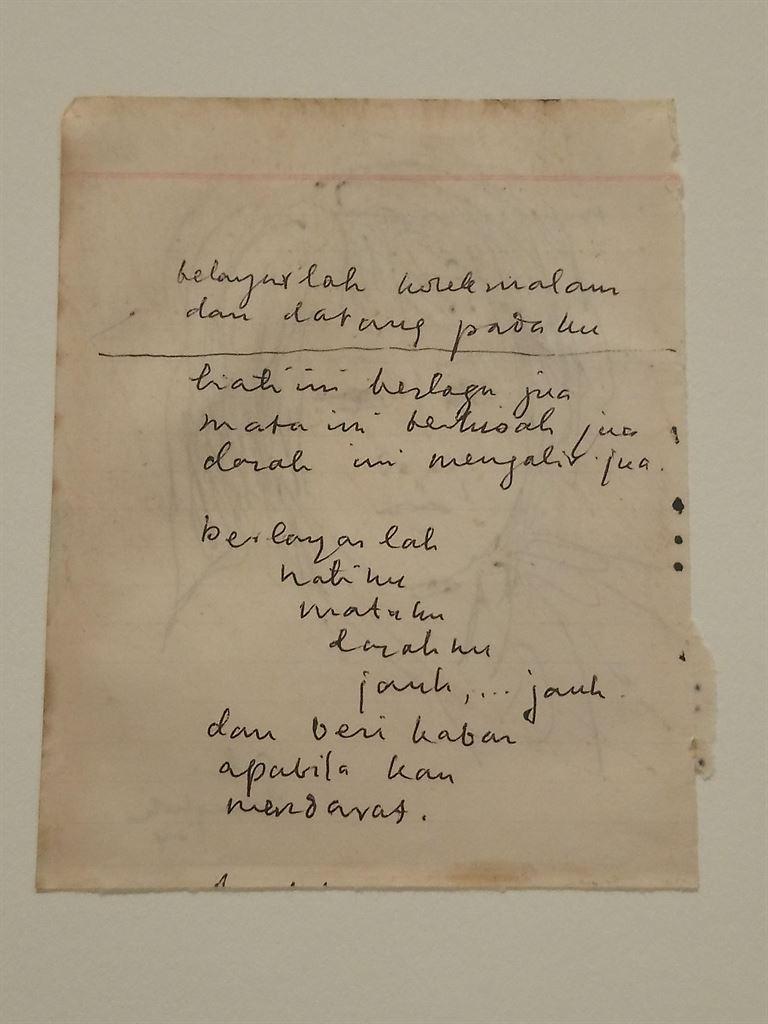 belayarlah malam
dan datang padaku
hati ini berlagu jua
mata ini berkisah jua
darah ini mengalir jua.
berlayarlah
hatiku
mataku
darahku
jauh,... jauh.
dan beri kabar
apabila kau
mendarat.